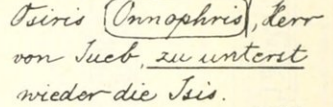 Osiris Onnophris, Herr
von Iueb, zu unterst
wieder die Isis.